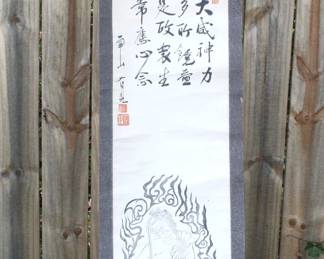 大威神力
多所饒益
是故衆生
常應心念
山